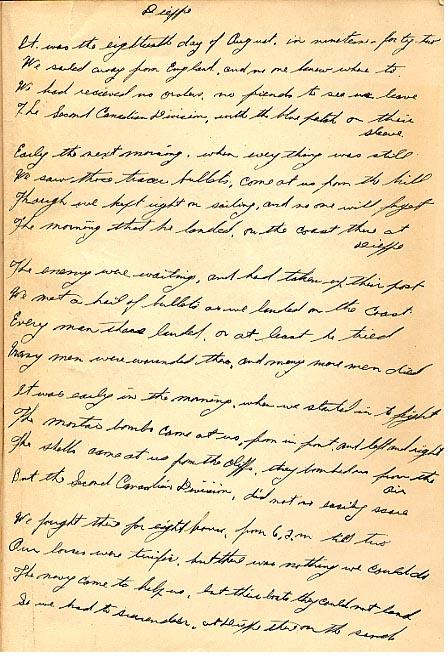 Dieppe
It was the eighteenth day of August, in nineteen-forty-two
We sailed away from England, and no one knew where to
We had recieved no orders, no friends to see us leave
The Second Canadian Division, with the blue patch on their
sleeve
Early the next morning, when everything was still
We saw those tracer bullets, come at us from the hill
Though we kept right on sailing, and no one will forget
The morning that we landed, on the coast there at
Dieppe
The enemy were waiting, and had taken up their post
We met a hail of bullets as we landed on the coast
Every man there landed, or at least he tried
Many men were wounded there, and many more men died
It was early in the morning, when we started in to fight
The mortar bombs came at us, from in front, and left and right
The shells came at us from the cliffs, they bombed us from the
air
But the Second Canadian Division, did not so easily scare
We fought there for eight hours, from 6, a.m till two
Our losses were terrific, but there was nothing we could do
The navy came to help us, but their boats they could not land
So we had to surrender, at Dieppe there on the sand